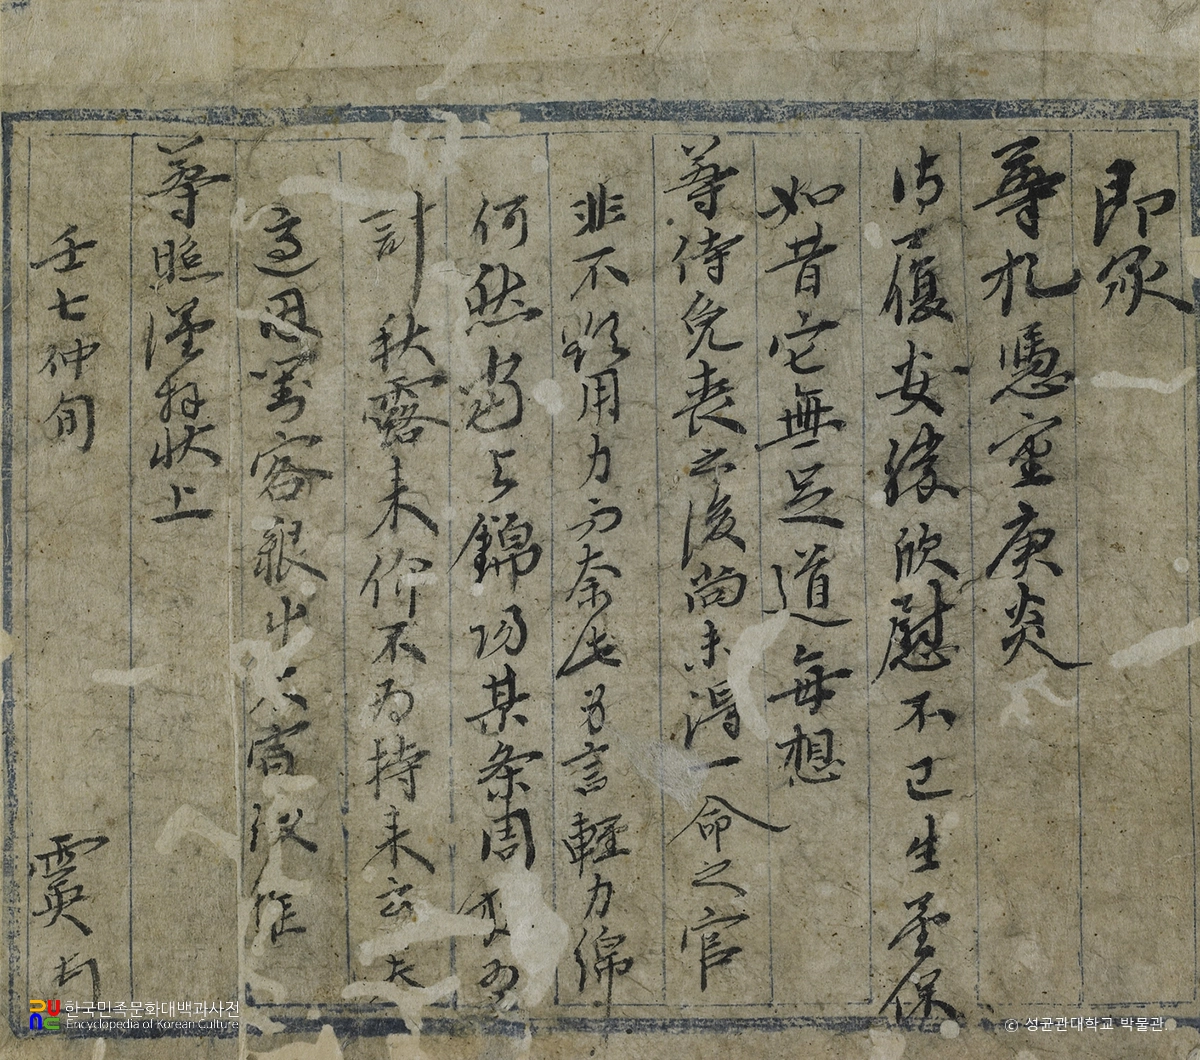 即承
尊札憑審庚炎
侍履安勝欣慰不已生堇保
如昔它無足道每想
尊侍免喪云後尚未得一命之官
非不欲用力而奈此身言輕力綿
何然當与錦陽某条周
計 秋露未仰不為持來云
適因對客艱出
尊照謹拜狀上
壬七仲旬
한국민족문화대백과사전
Encyclopedia of Korean Culture
ⓒ 성균관대학교 박물관